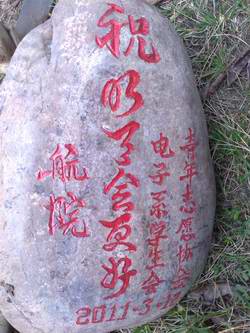 祝明天会更好
航院
青年志愿协会
电子系学生会
2011-3-